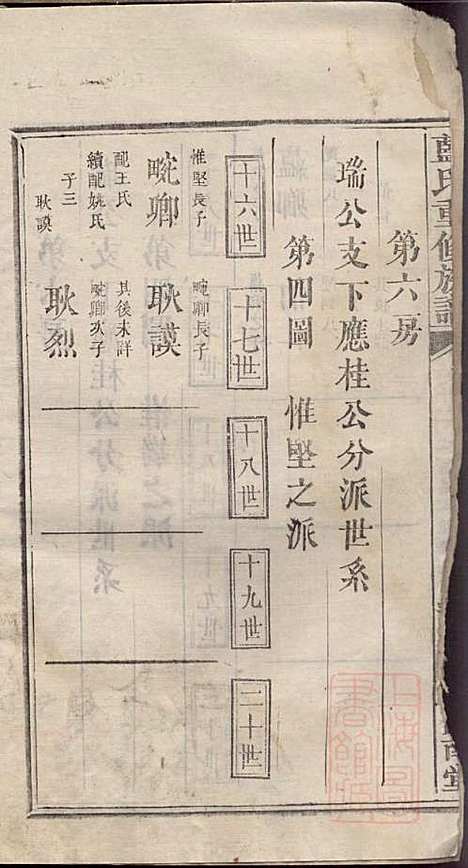 藍氏重修族譜
第六房
瑞公支下應桂公分派世系
第四圖 惟堅之派
十六世
十七世
十八世
十九世
二十世
惟堅長子
畹卿
配王氏
續配姚氏
子三
耿謨
畹卿長子
耿謨
其後未詳
畹卿次子
耿烈